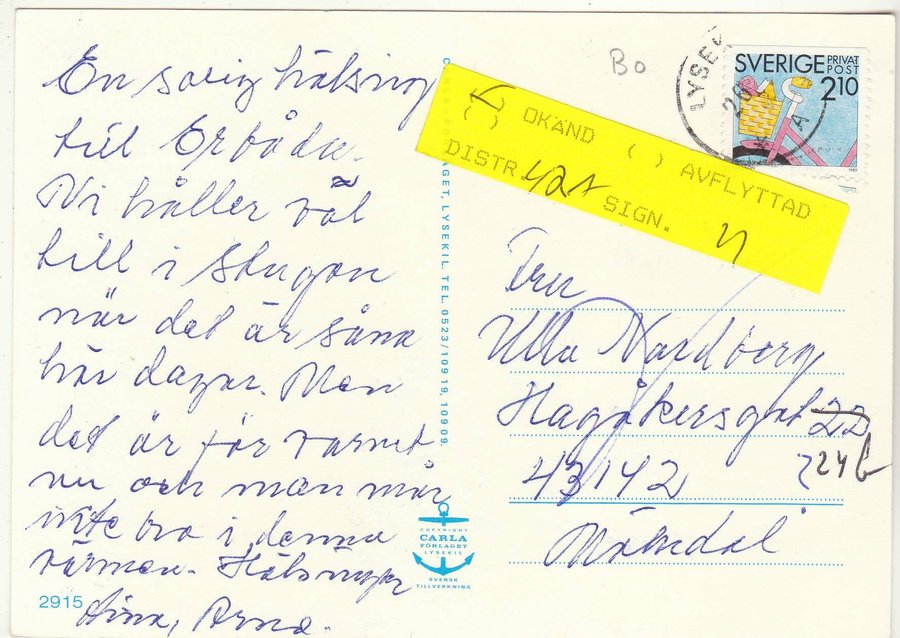 En solig hälsning
till Er båda.
Vi håller väl
till i stugan
när det är såna
här dagar. Men
det är för varmt
nu och man mår
inte bra i denna
värmen. Hälsningar
Arne.
2915
CARLA-FÖRLAGET, LYSEKIL. TEL. 0523/109 19, 109 09.
COPYRIGHT
CARLA
FÖRLAGET
LYSEKIL
SVENSK
TILLVERKNING
Bo
LYSEK
20
A
SVERIGE PRIVAT
POST
2.10
( ) OKÄND ( ) AVFLYTTAD
DISTR. 421 SIGN.
Fru
Ulla Nordberg
Hagåkersgat 22
24b
43142
Mölndal